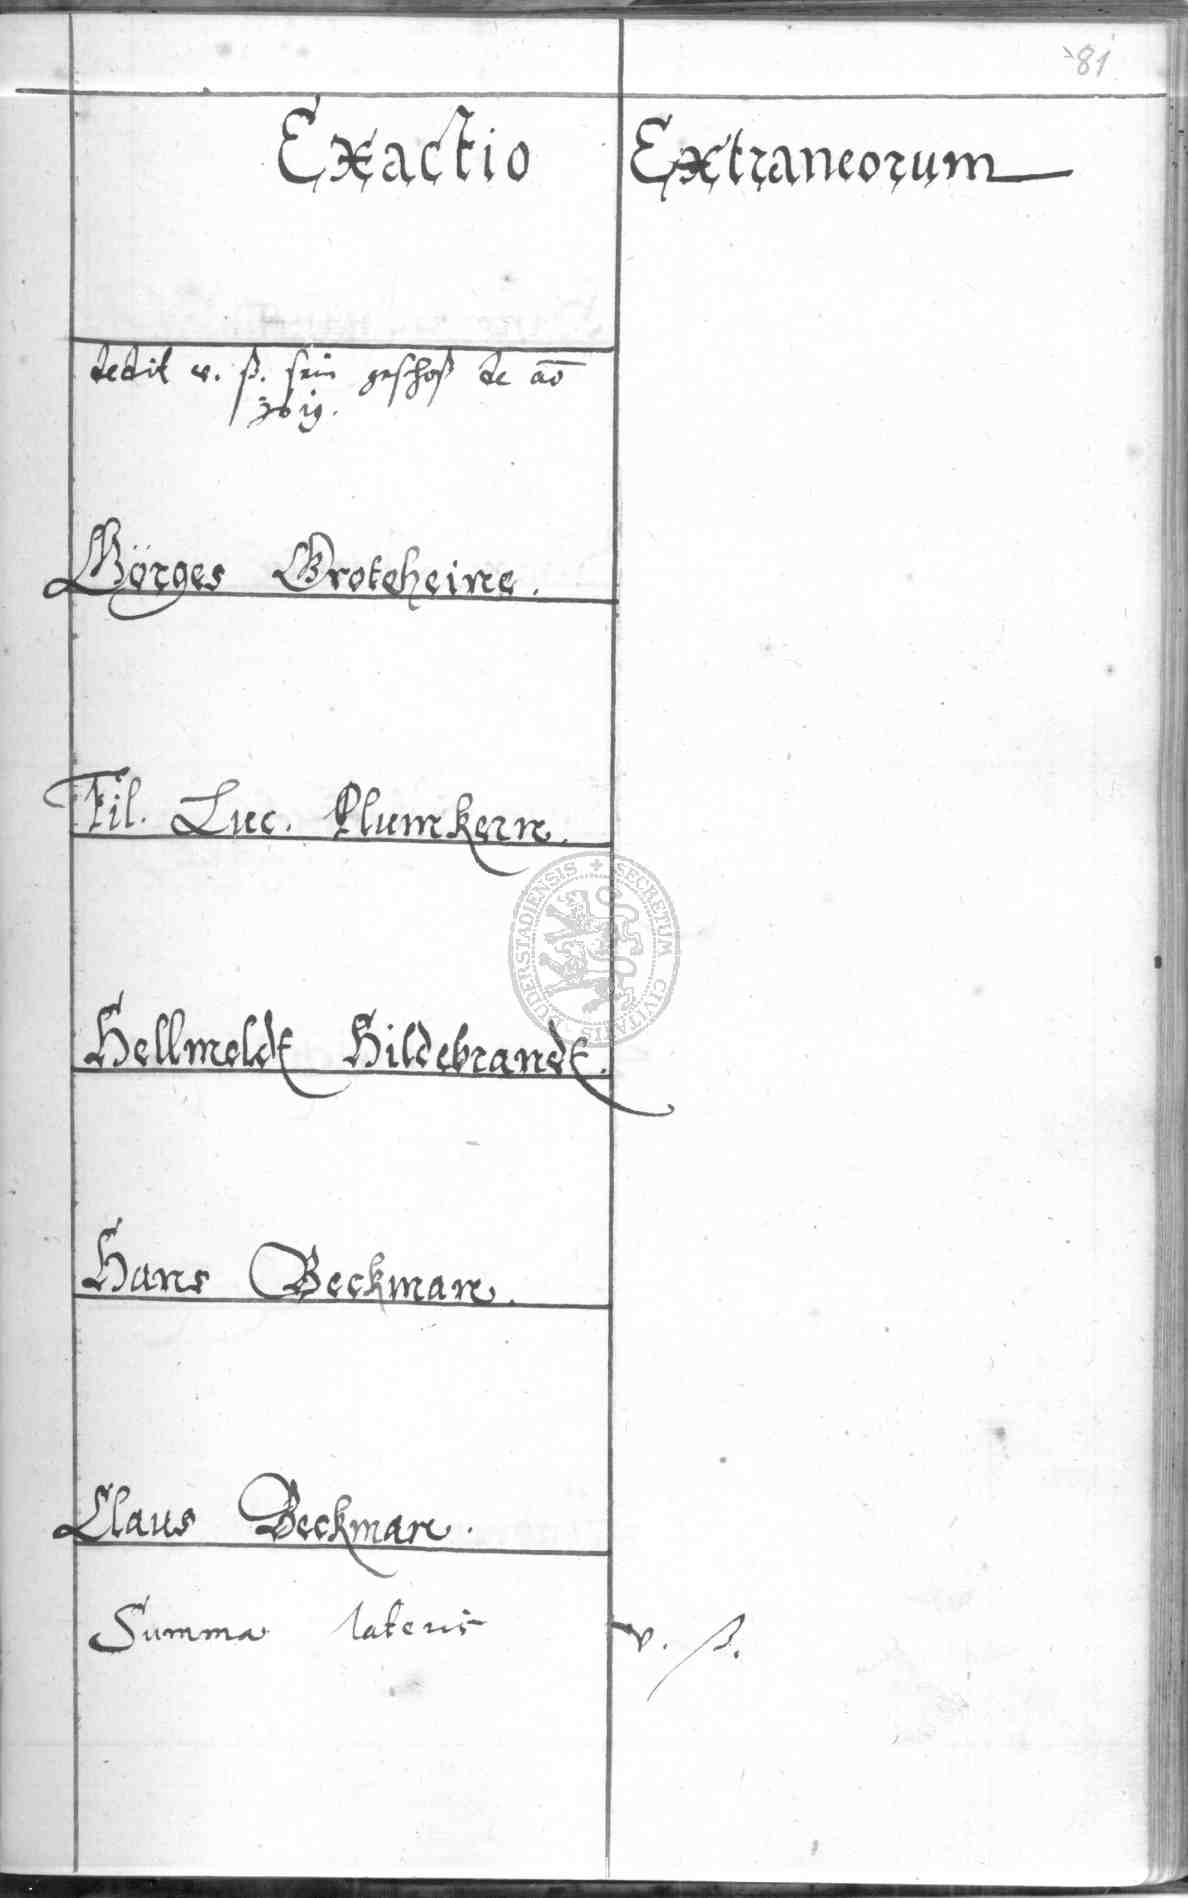 81
Exactio Extraneorum
dedit v. ß. sein geschoß de ao
Görges Groteheine.
Fil. Luc. Plumkern.
Hellmoldt Hildebrandt.
Hans Beckman.
Claus Beckman.
Summa lateris v. ß.
SECRETUM CIVITATIS DUDERSTADIENSIS